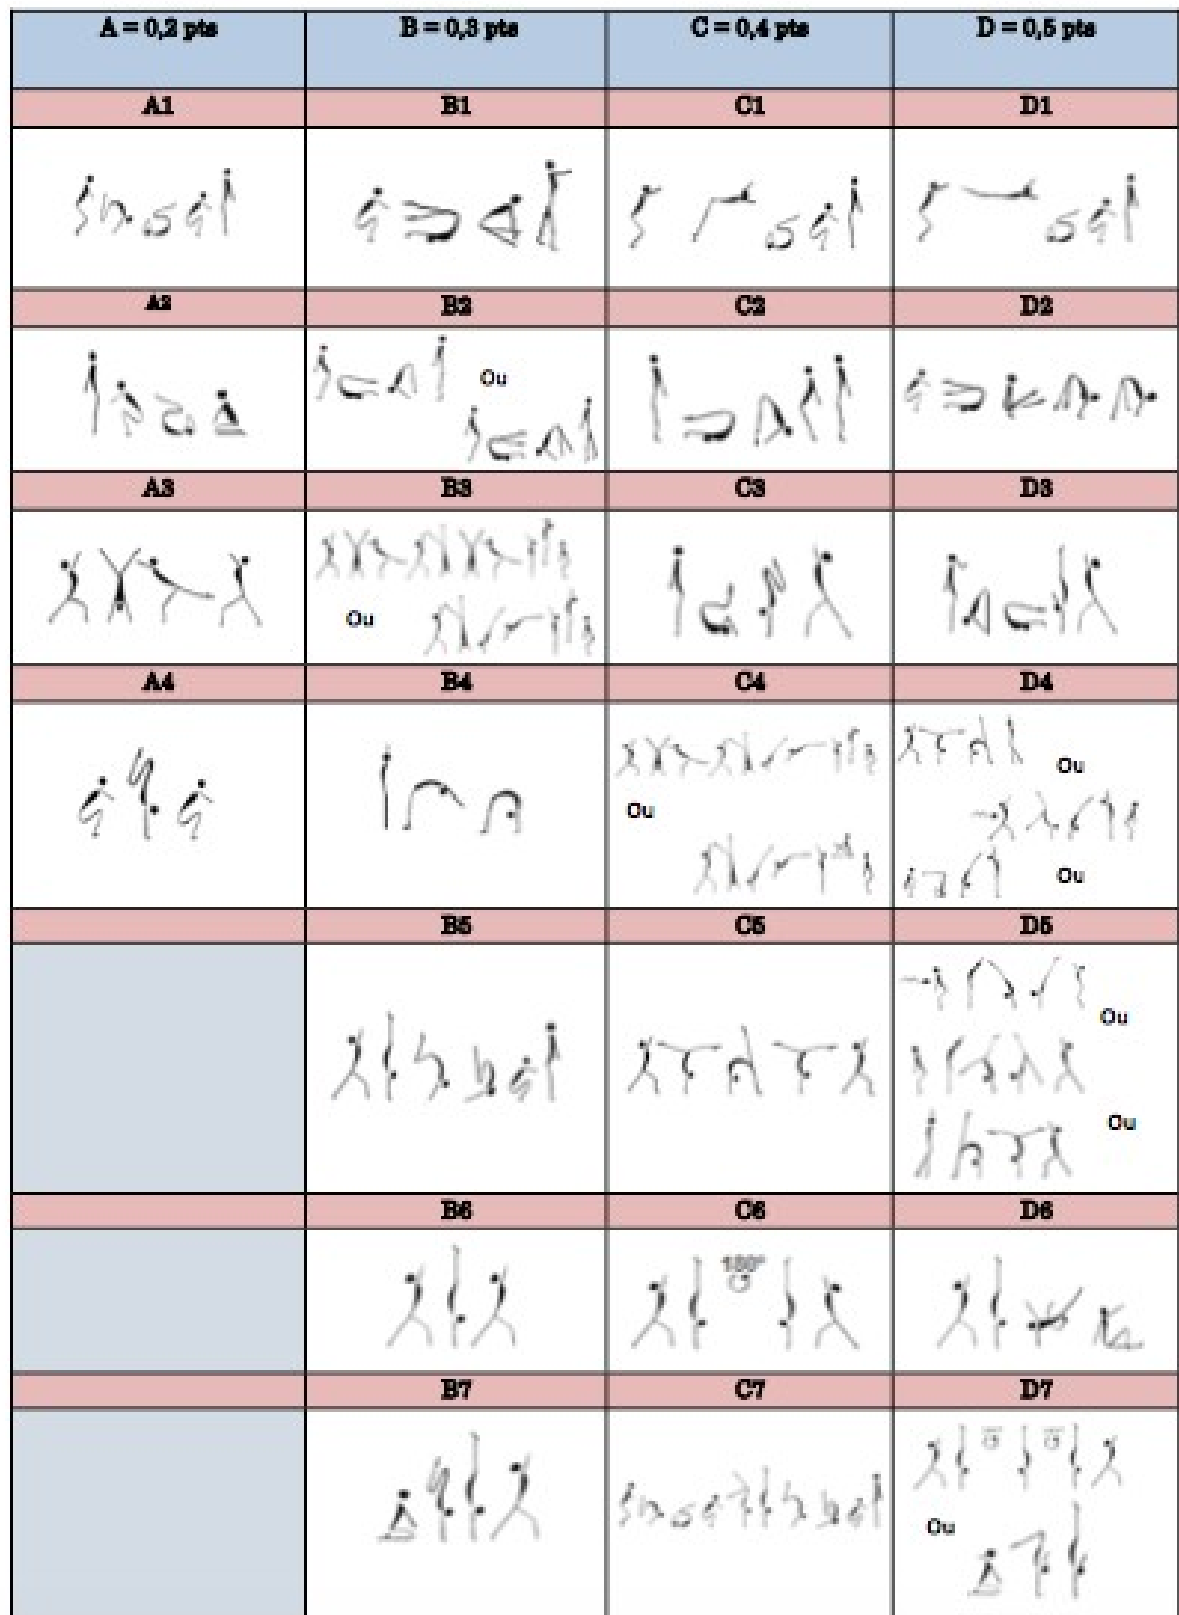 A = 0,2 pts B = 0,3 pts C = 0,4 pts D = 0,5 pts
A1 B1 C1 D1
A2 B2 C2 D2
Ou
A3 B3 C3 D3
Ou
A4 B4 C4 D4
Ou
Ou
Ou
B5 C5 D5
Ou
Ou
B6 C6 D6
180°
B7 C7 D7
Ou